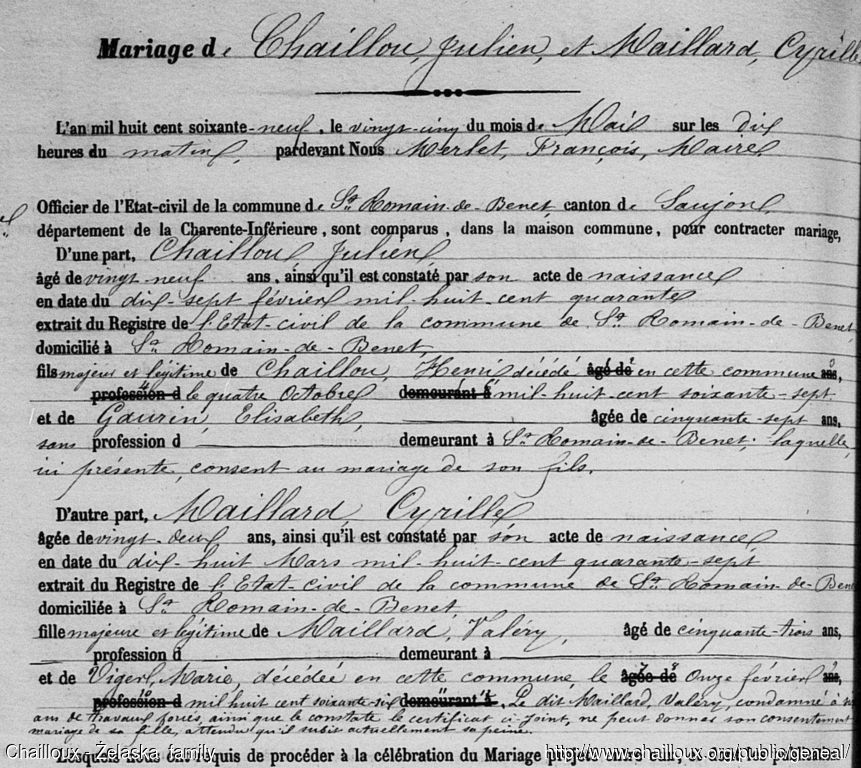 Mariage de Chaillou, Julien, et Maillard, Cyrille
L'an mil huit cent soixante-neuf, le vingt-cinq du mois de Mai sur les dix
heures du matin, pardevant Nous Merlet, François, Maire
Officier de l'Etat-civil de la commune de St Romain-de-Benet, canton de Saujon,
département de la Charente-Inférieure, sont comparus, dans la maison commune, pour contracter mariage,
D'une part, Chaillou Julien,
âgé de vingt neuf ans, ainsi qu'il est constaté par son acte de naissance
en date du dix-sept février mil-huit-cent quarante
extrait du Registre de l'Etat-civil de la commune de St Romain-de-Benet,
domicilié à St Romain-de-Benet,
fils majeur et légitime de Chaillou, Henri décédé âgé de en cette commune ans,
profession d le quatre Octobre demeurant à mil-huit-cent soixante-sept
et de Gaurin, Elisabeth, âgée de cinquante-sept ans,
sans profession d demeurant à St Romain-de-Benet, laquelle,
ici présente, consent au mariage de son fils.
D'autre part, Maillard, Cyrille
âgée de vingt-deux ans, ainsi qu'il est constaté par son acte de naissance,
en date du dix-huit Mars mil-huit-cent quarante-sept
extrait du Registre de l'Etat-civil de la commune de St Romain-de-Bene
domiciliée à St Romain-de-Benet,
fille majeure et légitime de Maillard, Valéry, âgé de cinquante-trois ans,
profession d demeurant à
et de Viger, Marie, décédée en cette commune, le âgée de Onze février ans,
profession d mil huit cent soixante-six demeurant à. Le dit Maillard, Valéry, condamné à
ans de travaux forcés, ainsi que le constate le certificat ci-joint, ne peut donner son consentement
mariage de sa fille, attendu qu'il subit actuellement sa peine.
Lesquels nous ont requis de procéder à la célébration du Mariage projeté entre eux, et dont les publications
Chailloux - Żelaska family
http://www.chailloux.org/public/geneal/